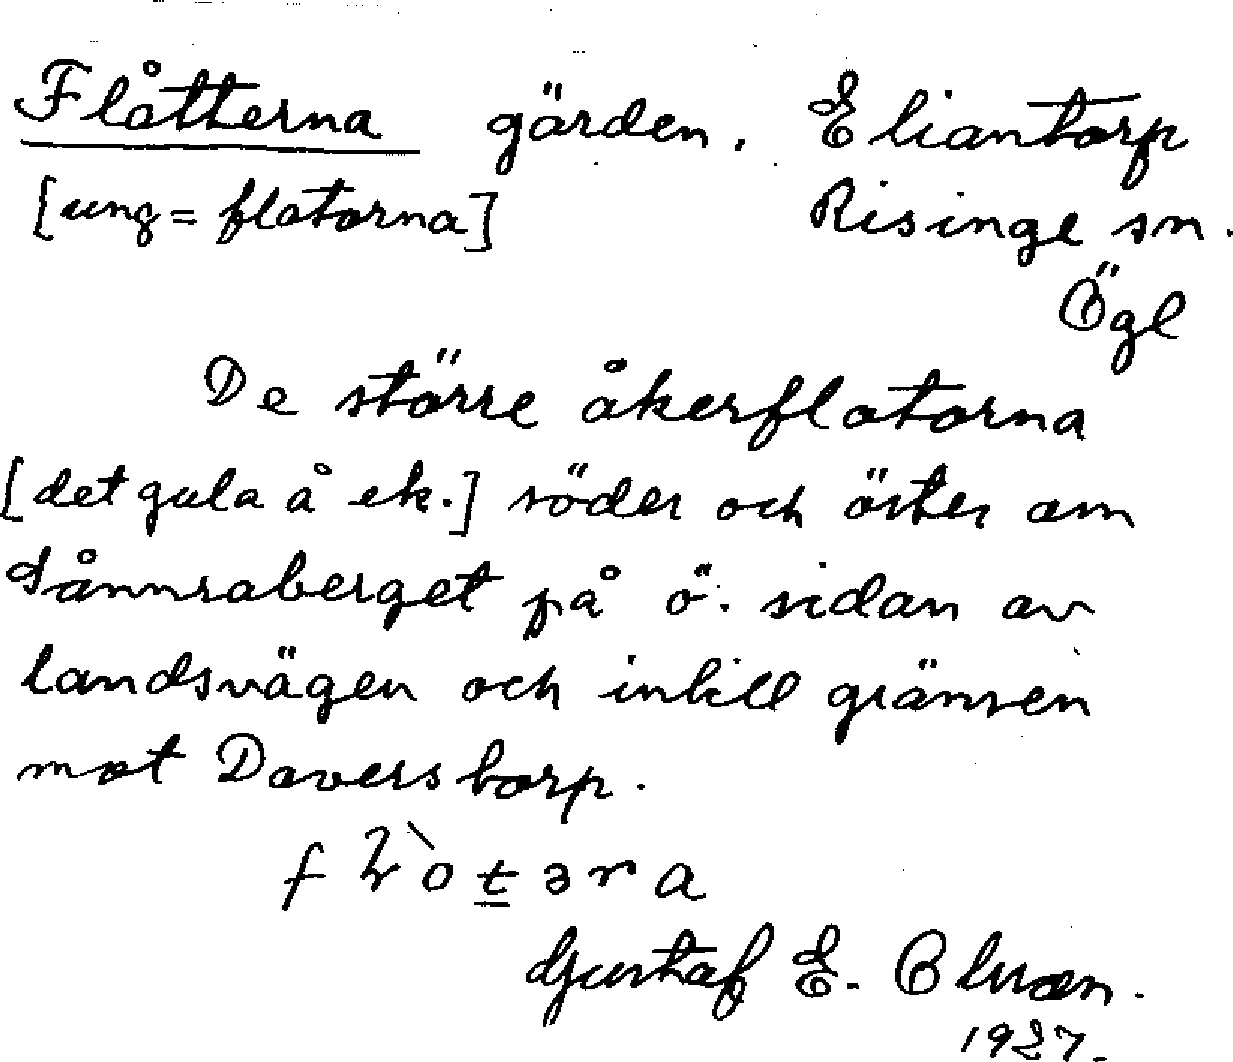 Flåtterna gärden. Eliantorp
[ung = flatorna] Risinge sn.
Ögl
De större åkerflatorna
[det gula å ek.] söder och öster om
Sånnraberget på ö. sidan av
landsvägen och intill gränsen
mot Daverstorp.
Gustaf E.
1927.